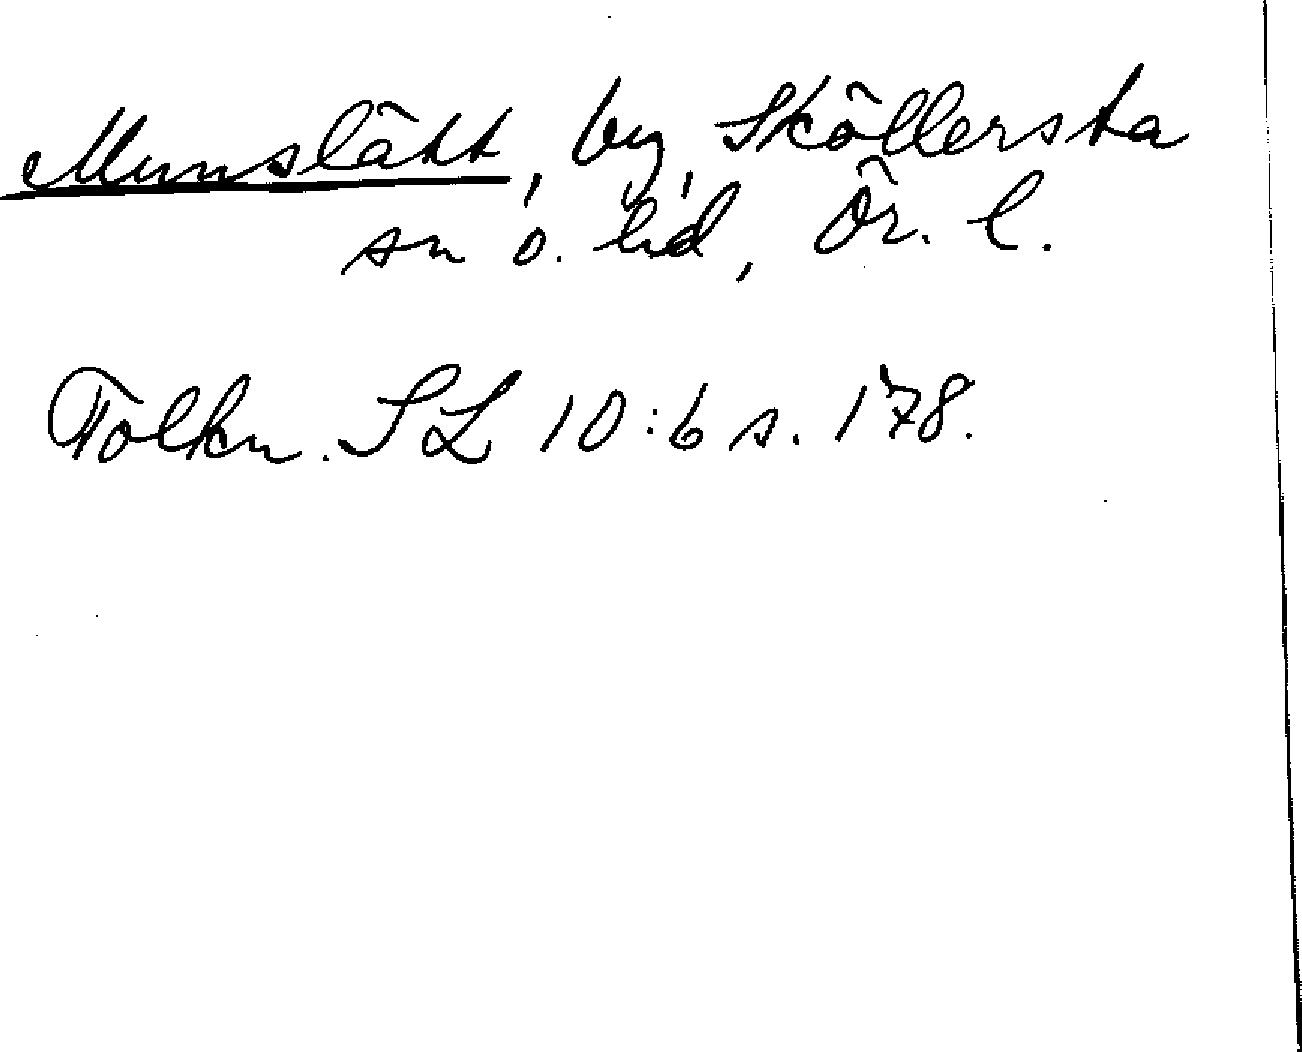 Munslätt, by, Sköllersta
sn o. hd, Ör. l.
Tolkn. SL 10:6 s. 178.